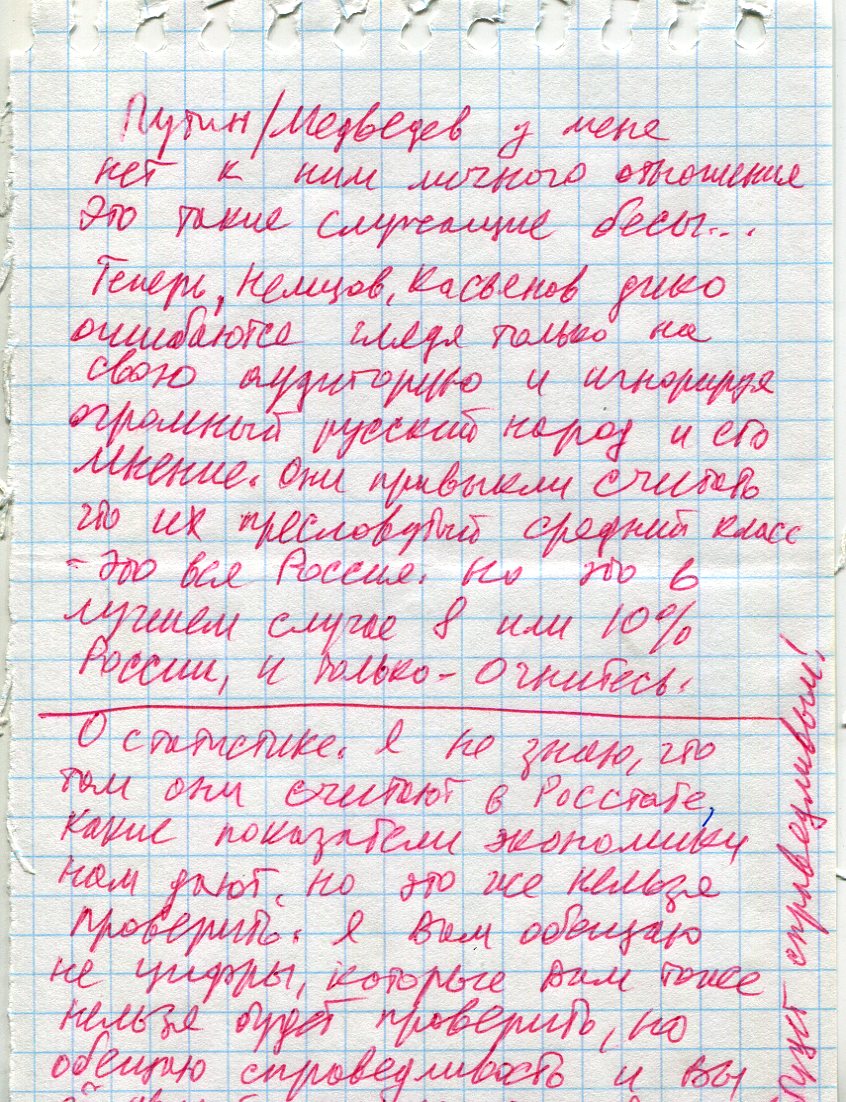 Путин/Медведев у меня
нет к ним личного отношения
Это такие служащие бесы...
Теперь, Немцов, Касьянов дико
ошибаются глядя только на
свою аудиторую и игнорируя
огромный русский народ и его
мнение. Они привыкли считать
что их пресловутый средний класс
- это вся Россия. Но это в
лучшем случае 8 или 10%
России, и только - Очнитесь.
О статистике. Я не знаю, что
там они считают в Росстате,
какие показатели экономики
нам дают, но это же нельзя
проверить. Я Вам обещаю
не цифры, которые Вам тоже
нельзя будет проверить, но
обещаю справедливость и Вы
будет справедливым!